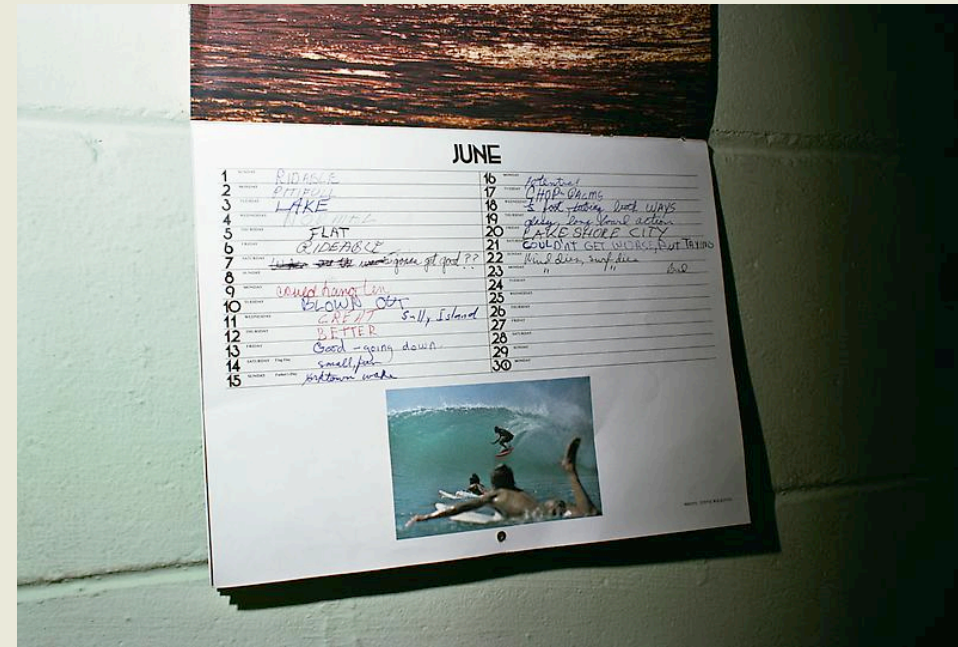 JUNE
1 SUNDAY RIDABLE
2 MONDAY PITIFULL
3 TUESDAY LAKE
4 WEDNESDAY
5 THURSDAY FLAT
6 FRIDAY RIDEABLE
7 SATURDAY gonna get good??
8 SUNDAY
9 MONDAY could hang ten
10 TUESDAY BLOWN OUT
11 WEDNESDAY GREAT Sully Island
12 THURSDAY BETTER
13 FRIDAY Good - going down
14 SATURDAY Flag Day small, fun
15 SUNDAY Father's Day yorktown wake
16 MONDAY potential
17 TUESDAY CHOP
18 WEDNESDAY foot WAVS
19 THURSDAY glassy long board action
20 FRIDAY LAKE SHORE CITY
21 SATURDAY COULDNT GET WORSE, BUT TRYING
22 SUNDAY Wind dies, surf dies
23 MONDAY " "
24 TUESDAY
25 WEDNESDAY
26 THURSDAY
27 FRIDAY
28 SATURDAY
29 SUNDAY
30 MONDAY